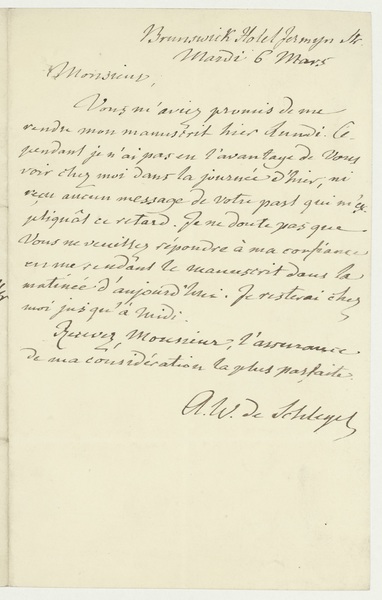 Brunswick Hotel Jermyn Str.
Mardi 6 Mars
Monsieur,
Vous m'aviez promis de me
rendre mon manuscrit hier Lundi. Ce-
pendant je n'ai pas eu l'avantage de Vous
voir chez moi dans la journée d'hier, ni
reçu aucun message de Votre part qui m'ex-
pliquât ce retard. Je ne doute pas que
Vous ne veuillez repondre à ma confiance
en me rendant le manuscrit dans la
matinée d'aujourd'hui. Je resterai chez
moi jusqu'à midi.
Recevez, Monsieur, l'assurance
de ma considération la plus parfaite.
A. W. de Schlegel